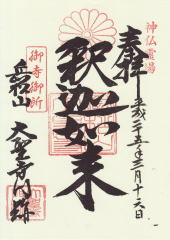 神仏霊場
奉拝
平成二十五年三月十六日
釈迦如来
御寺御所
大聖寺門跡